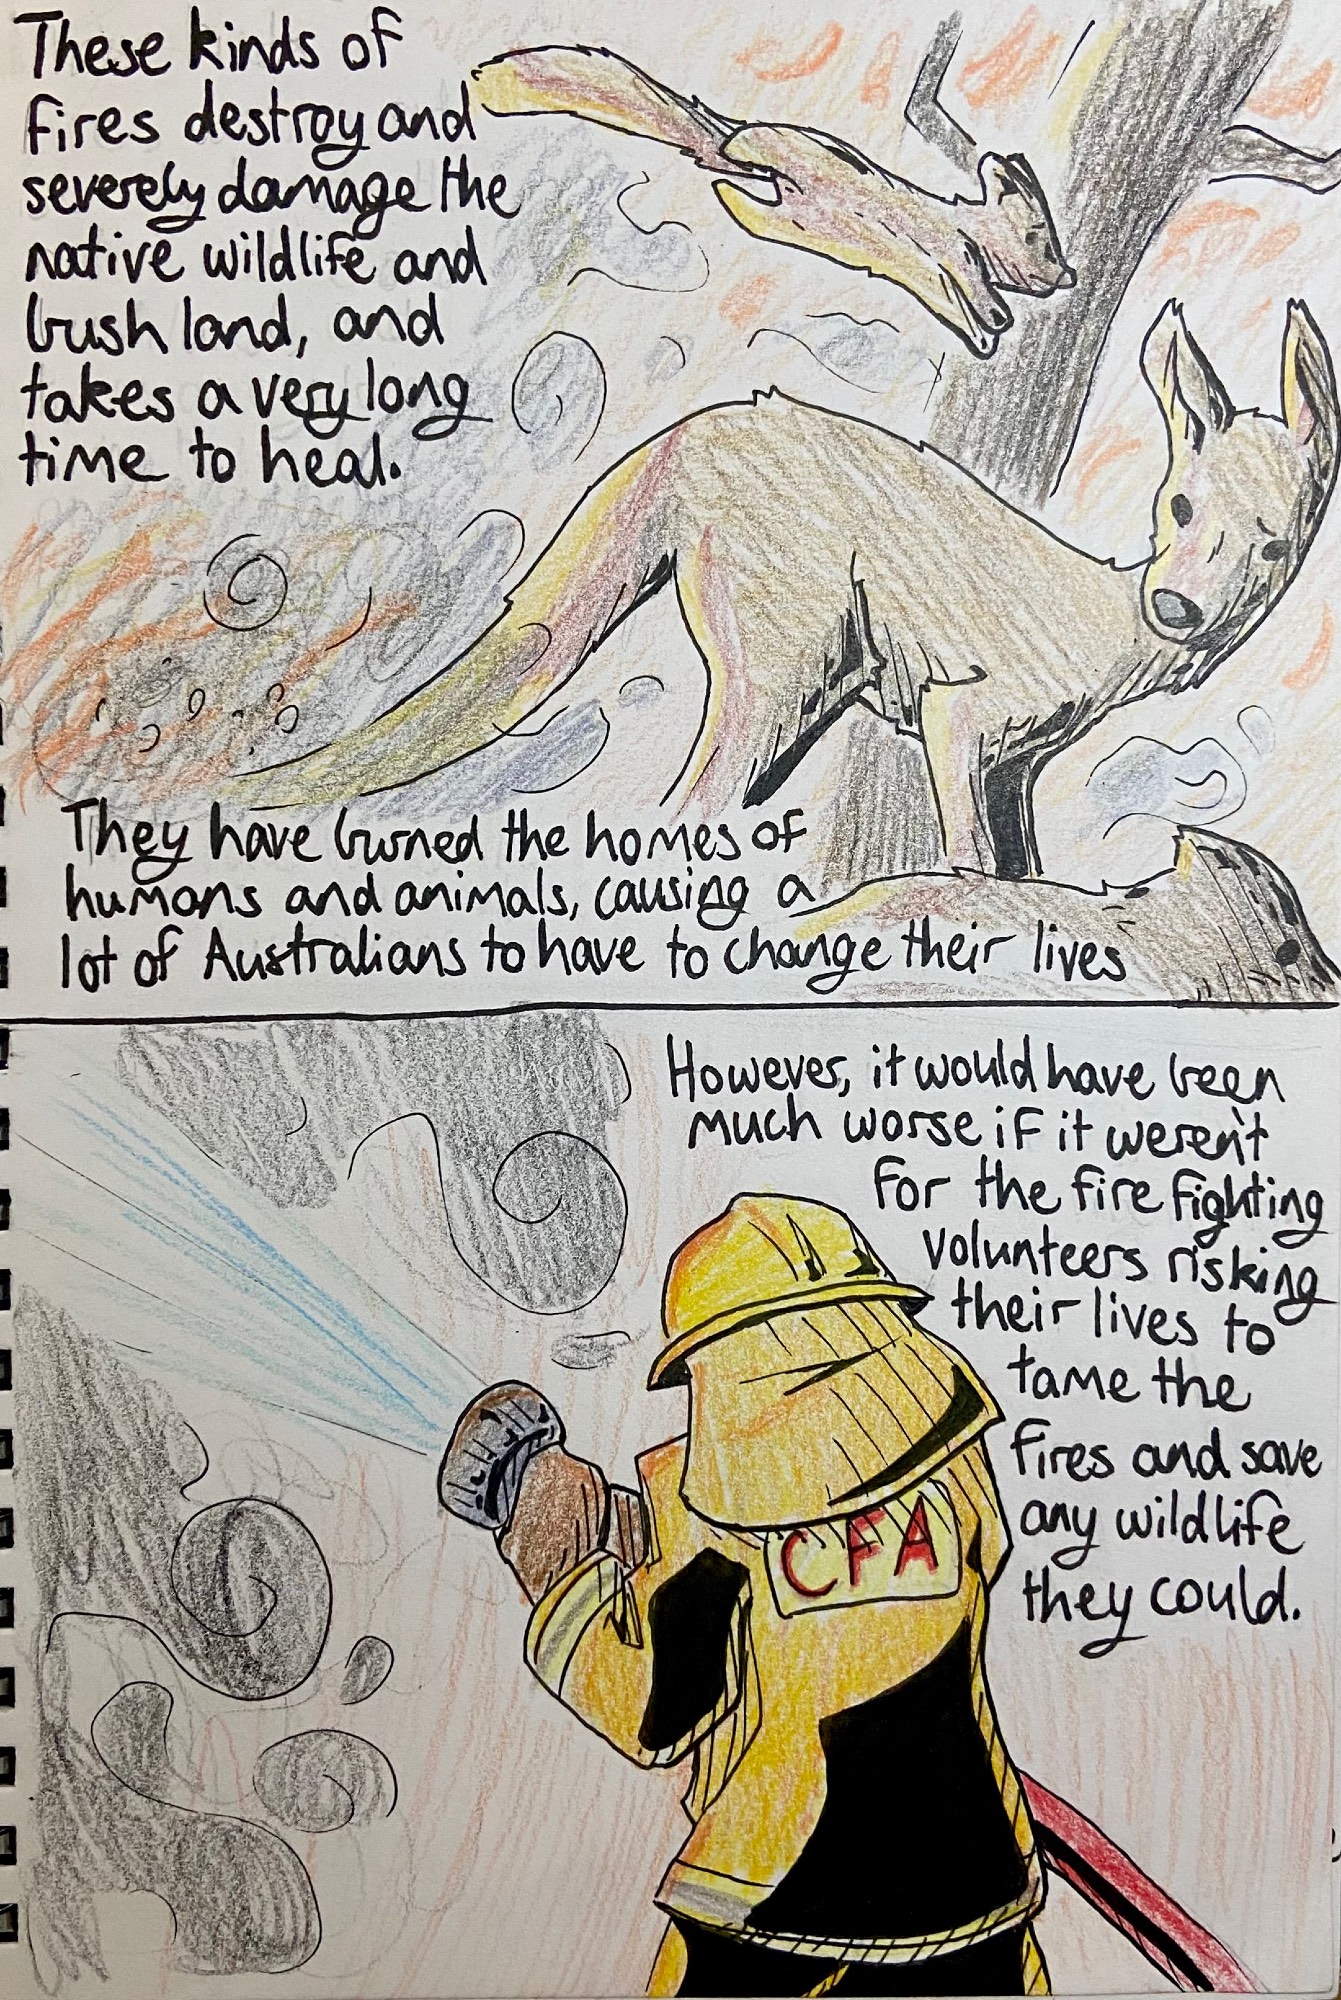 These kinds of
fires destroy and
severely damage the
native wildlife and
bush land, and
takes a very long
time to heal.
They have burned the homes of
humans and animals, causing a
lot of Australians to have to change their lives
However, it would have been
much worse if it weren't
for the fire fighting
volunteers risking
their lives to
tame the
fires and save
any wildlife
they could.
CFA